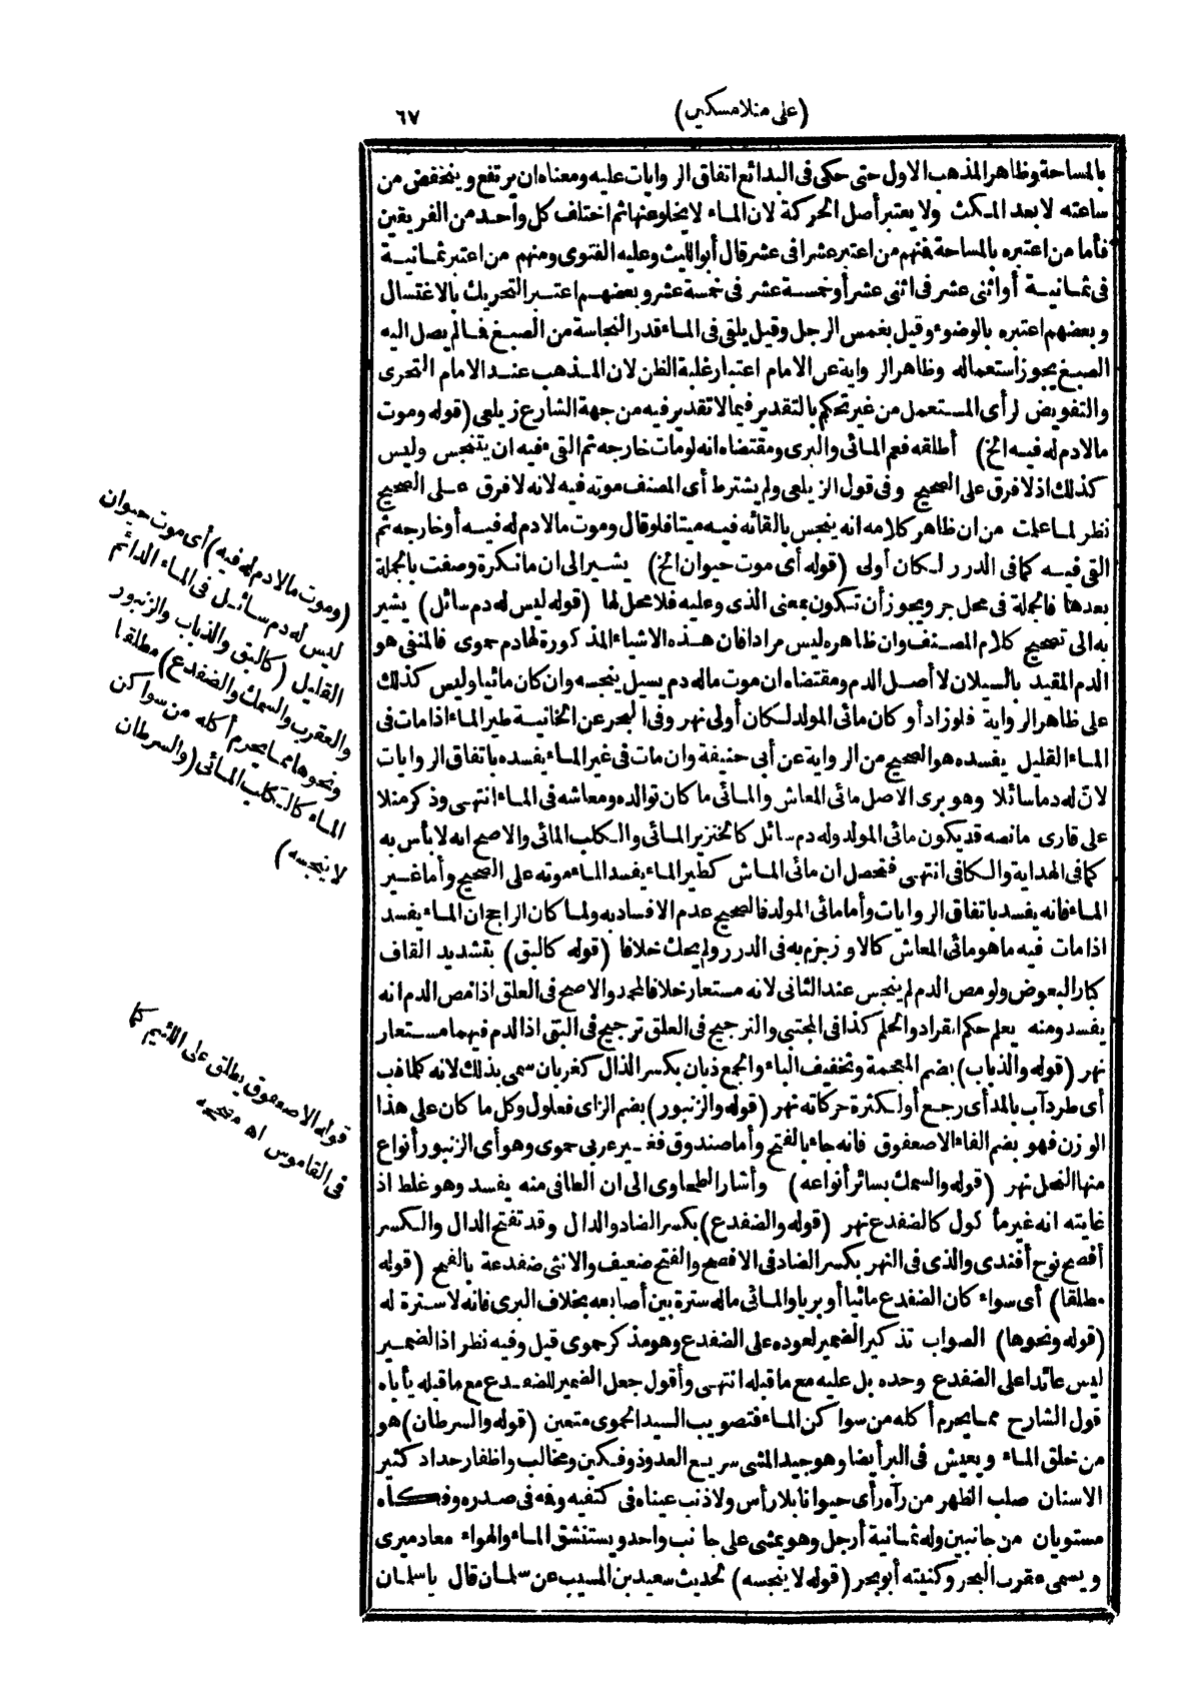 (على منلامسكين)
٦٧
بالمساحة وظاهر المذهب الاول حتى حكى فى البدائع اتفاق الروايات عليه ومعناه ان يرتفع وينخفض من
ساعته لا بعد المكث ولا يعتبر أصل الحركة لان الماء لا يخلو عنها ثم اختلف كل واحد من الفريقين
فأما من اعتبره بالمساحة فمنهم من اعتبر عشرا فى عشر قال أبو الليث وعليه الفتوى ومنهم من اعتبر ثمانية
فى ثمانية أو اثنى عشر فى اثنى عشر أو خمسة عشر فى خمسة عشر وبعضهم اعتبر التحريك بالاغتسال
وبعضهم اعتبره بالوضوء وقيل بغمس الرجل وقيل يلقى فى الماء قدر النجاسة من الصبغ فما لم يصل اليه
الصبغ يجوز استعماله وظاهر الرواية عن الامام اعتبار غلبة الظن لان المذهب عند الامام التحرى
والتفويض لرأى المستعمل من غير تحكم بالتقدير فيما لا تقدير فيه من جهة الشارع زيلعى (قوله وموت
مالادم له فيه الخ) أطلقه فعم المائى والبرى ومقتضاه انه لو مات خارجه ثم القى فيه ان يتنجس وليس
كذلك اذ لا فرق على الصحيح وفى قول الزيلعى ولم يشترط أى المصنف موته فيه لانه لا فرق على الصحيح
نظر لما علمت من ان ظاهر كلامه انه ينجس بالقائه فيه ميتا فلو قال وموت مالادم له فيه أو خارجه ثم
القى فيه كما فى الدرر لكان أولى (قوله أى موت حيوان الخ) يشير الى ان ما نكرة وصفت بالجملة
بعدها فالجملة فى محل جر ويجوز أن تكون بمعنى الذى وعليه فلا محل لها (قوله ليس له دم سائل) يشير
به الى تصحيح كلام المصنف وان ظاهره ليس مرادا فان هذه الاشياء المذكورة لها دم حموى فالمنفى هو
الدم المقيد بالسيلان لا أصل الدم ومقتضاه ان موت ماله دم يسيل ينجسه وان كان مائيا وليس كذلك
على ظاهر الرواية فلو زاد أو كان مائى المولد لكان أولى نهر وفى البحر عن الخانية طير الماء اذا مات فى
الماء القليل يفسده هو الصحيح من الرواية عن أبى حنيفة وان مات فى غير الماء يفسده باتفاق الروايات
لان له دما سائلا وهو برى الاصل مائى المعاش والمائى ما كان توالده ومعاشه فى الماء انتهى وذكر منلا
على قارى مانصه قد يكون مائى المولد وله دم سائل كالخنزير المائى والكلب المائى والاصح انه لا بأس به
كما فى الهداية والكافى انتهى فتحصل ان مائى المعاش كطير الماء يفسد الماء موته على الصحيح وأما غير
الماء فانه يفسد باتفاق الروايات وأما مائى المولد فالصحيح عدم الافساد به ولما كان الراجح ان الماء يفسد
اذا مات فيه ما هو مائى المعاش كالاوز جزم به فى الدرر ولم يحك خلافا (قوله كالبق) بتشديد القاف
كبار البعوض ولو مص الدم لم ينجس عند الثانى لانه مستعار خلافا لمحمد والاصح فى العلق اذا مص الدم انه
يفسد ومنه يعلم حكم القراد والحلم كذا فى المجتبى والترجيح فى العلق ترجيح فى البق اذ الدم فيهما مستعار
نهر (قوله والذباب) بضم المعجمة وتخفيف الباء والجمع ذبان بكسر الذال كغربان سمى بذلك لانه كلما ذب
أى طرد آب بالمد أى رجع أو لكثرة حركاته نهر (قوله والزنبور) بضم الزاى فعلول وكل ما كان على هذا
الوزن فهو بضم الفاء الا صعفوق فانه جاء بالفتح وأما صندوق فغير عربى حموى وهو أى الزنبور أنواع
منها النحل نهر (قوله والسمك بسائر أنواعه) وأشار الطحاوى الى ان الطافى منه يفسد وهو غلط اذ
غايته انه غير مأكول كالضفدع نهر (قوله والضفدع) بكسر الضاد والدال وقد تفتح الدال والكسر
أفصح نوح أفندى والذى فى النهر بكسر الضاد فى الافصح والفتح ضعيف والانثى ضفدعة بالفتح (قوله
مطلقا) أى سواء كان الضفدع مائيا أو بريا والمائى ماله سترة بين أصابعه بخلاف البرى فانه لا سترة له
(قوله ونحوها) الصواب تذكير الضمير لعوده على الضفدع وهو مذكر حموى قيل وفيه نظر اذ الضمير
ليس عائدا على الضفدع وحده بل عليه مع ما قبله انتهى وأقول جعل الضمير للضفدع مع ما قبله يأباه
قول الشارح مما يحرم أكله من سواكن الماء فتصويب السيد الحموى متعين (قوله والسرطان) هو
من خلق الماء ويعيش فى البر أيضا وهو جيد المشى سريع العدو ذو فكين ومخالب واظفار حداد كثير
الاسنان صلب الظهر من رآه رأى حيوانا بلا رأس ولا ذنب عيناه فى كتفيه وفه فى صدره وفكاه
مستويان من جانبين وله ثمانية أرجل وهو يمشى على جانب واحد ويستنشق الماء والهواء معا دميرى
ويسمى عقرب البحر وكنيته أبو بحر (قوله لا ينجسه) لحديث سعيد بن المسيب عن سلمان قال ياسلمان
(وموت مالادم له فيه) أى موت حيوان
ليس له دم سائل فى الماء الدائم
القليل (كالبق والذباب والزنبور
والعقرب والسمك والضفدع) مطلقا
ونحوها مما يحرم أكله من سواكن
الماء كالكلب المائى (والسرطان
لا ينجسه)
قوله الا صعفوق يطلق على اللئيم كما
فى القاموس اه مصححه